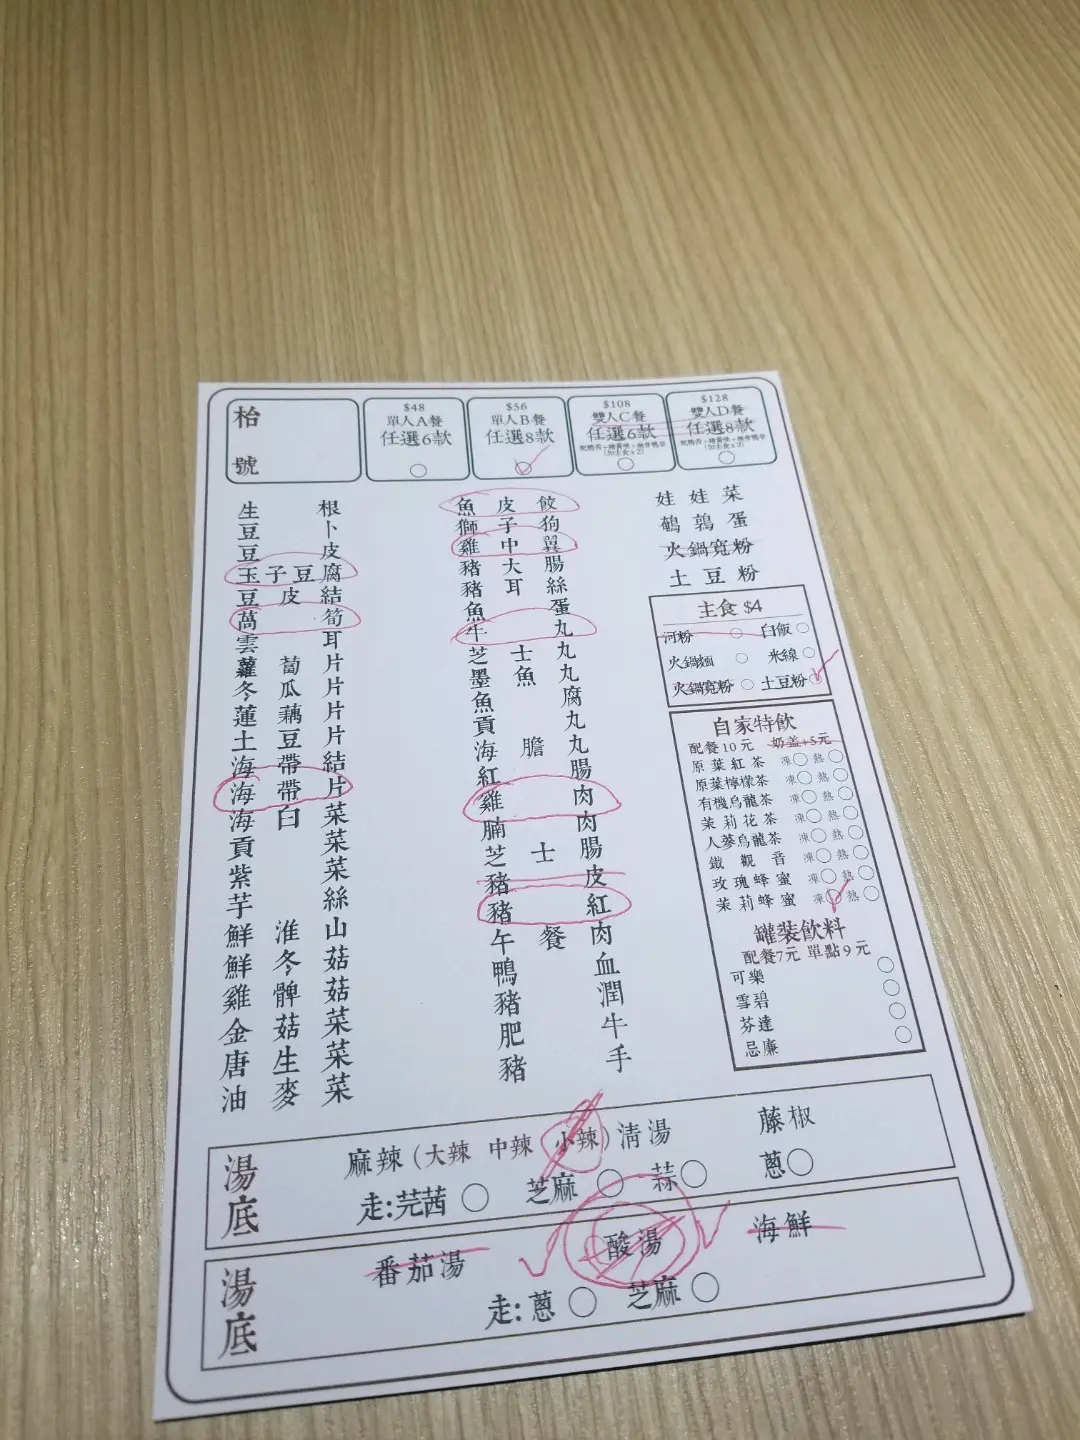 枱號
$48
單人A餐
任選6款
$56
單人B餐
任選8款
$108
雙人C餐
任選6款
$128
雙人D餐
任選8款
生根
豆卜
豆皮
玉子豆腐
豆皮結
萵筍
雲耳
蘿蔔片
冬瓜片
蓮藕片
土豆片
海帶結
海帶片
海白菜
貢菜
紫菜
芋絲
鮮淮山
鮮冬菇
雞髀菇
金菇菜
唐生菜
油麥菜
魚皮餃
獅子狗
雞中翼
豬大腸
豬耳絲
魚蛋
牛丸
芝士丸
墨魚丸
魚腐
貢丸
海膽丸
紅腸
雞肉
腩肉
芝士腸
豬皮
豬紅
午餐肉
鴨血
豬潤
肥牛
豬手
娃娃菜
鵪鶉蛋
火鍋寬粉
土豆粉
主食 $4
河粉 白飯
火鍋麵 米線
火鍋寬粉 土豆粉
自家特飲
配餐10元 奶盖+5元
原葉紅茶 凍 熱
原葉檸檬茶 凍 熱
有機烏龍茶 凍 熱
茉莉花茶 凍 熱
人蔘烏龍茶 凍 熱
鐵觀音 凍 熱
玫瑰蜂蜜 凍 熱
茉莉蜂蜜 凍 熱
罐裝飲料
配餐7元 單點9元
可樂
雪碧
芬達
忌廉
湯底
麻辣(大辣 中辣 小辣) 清湯 藤椒
走:芫茜 芝麻 蒜 蔥
湯底
番茄湯 酸湯 海鮮
走:蔥 芝麻